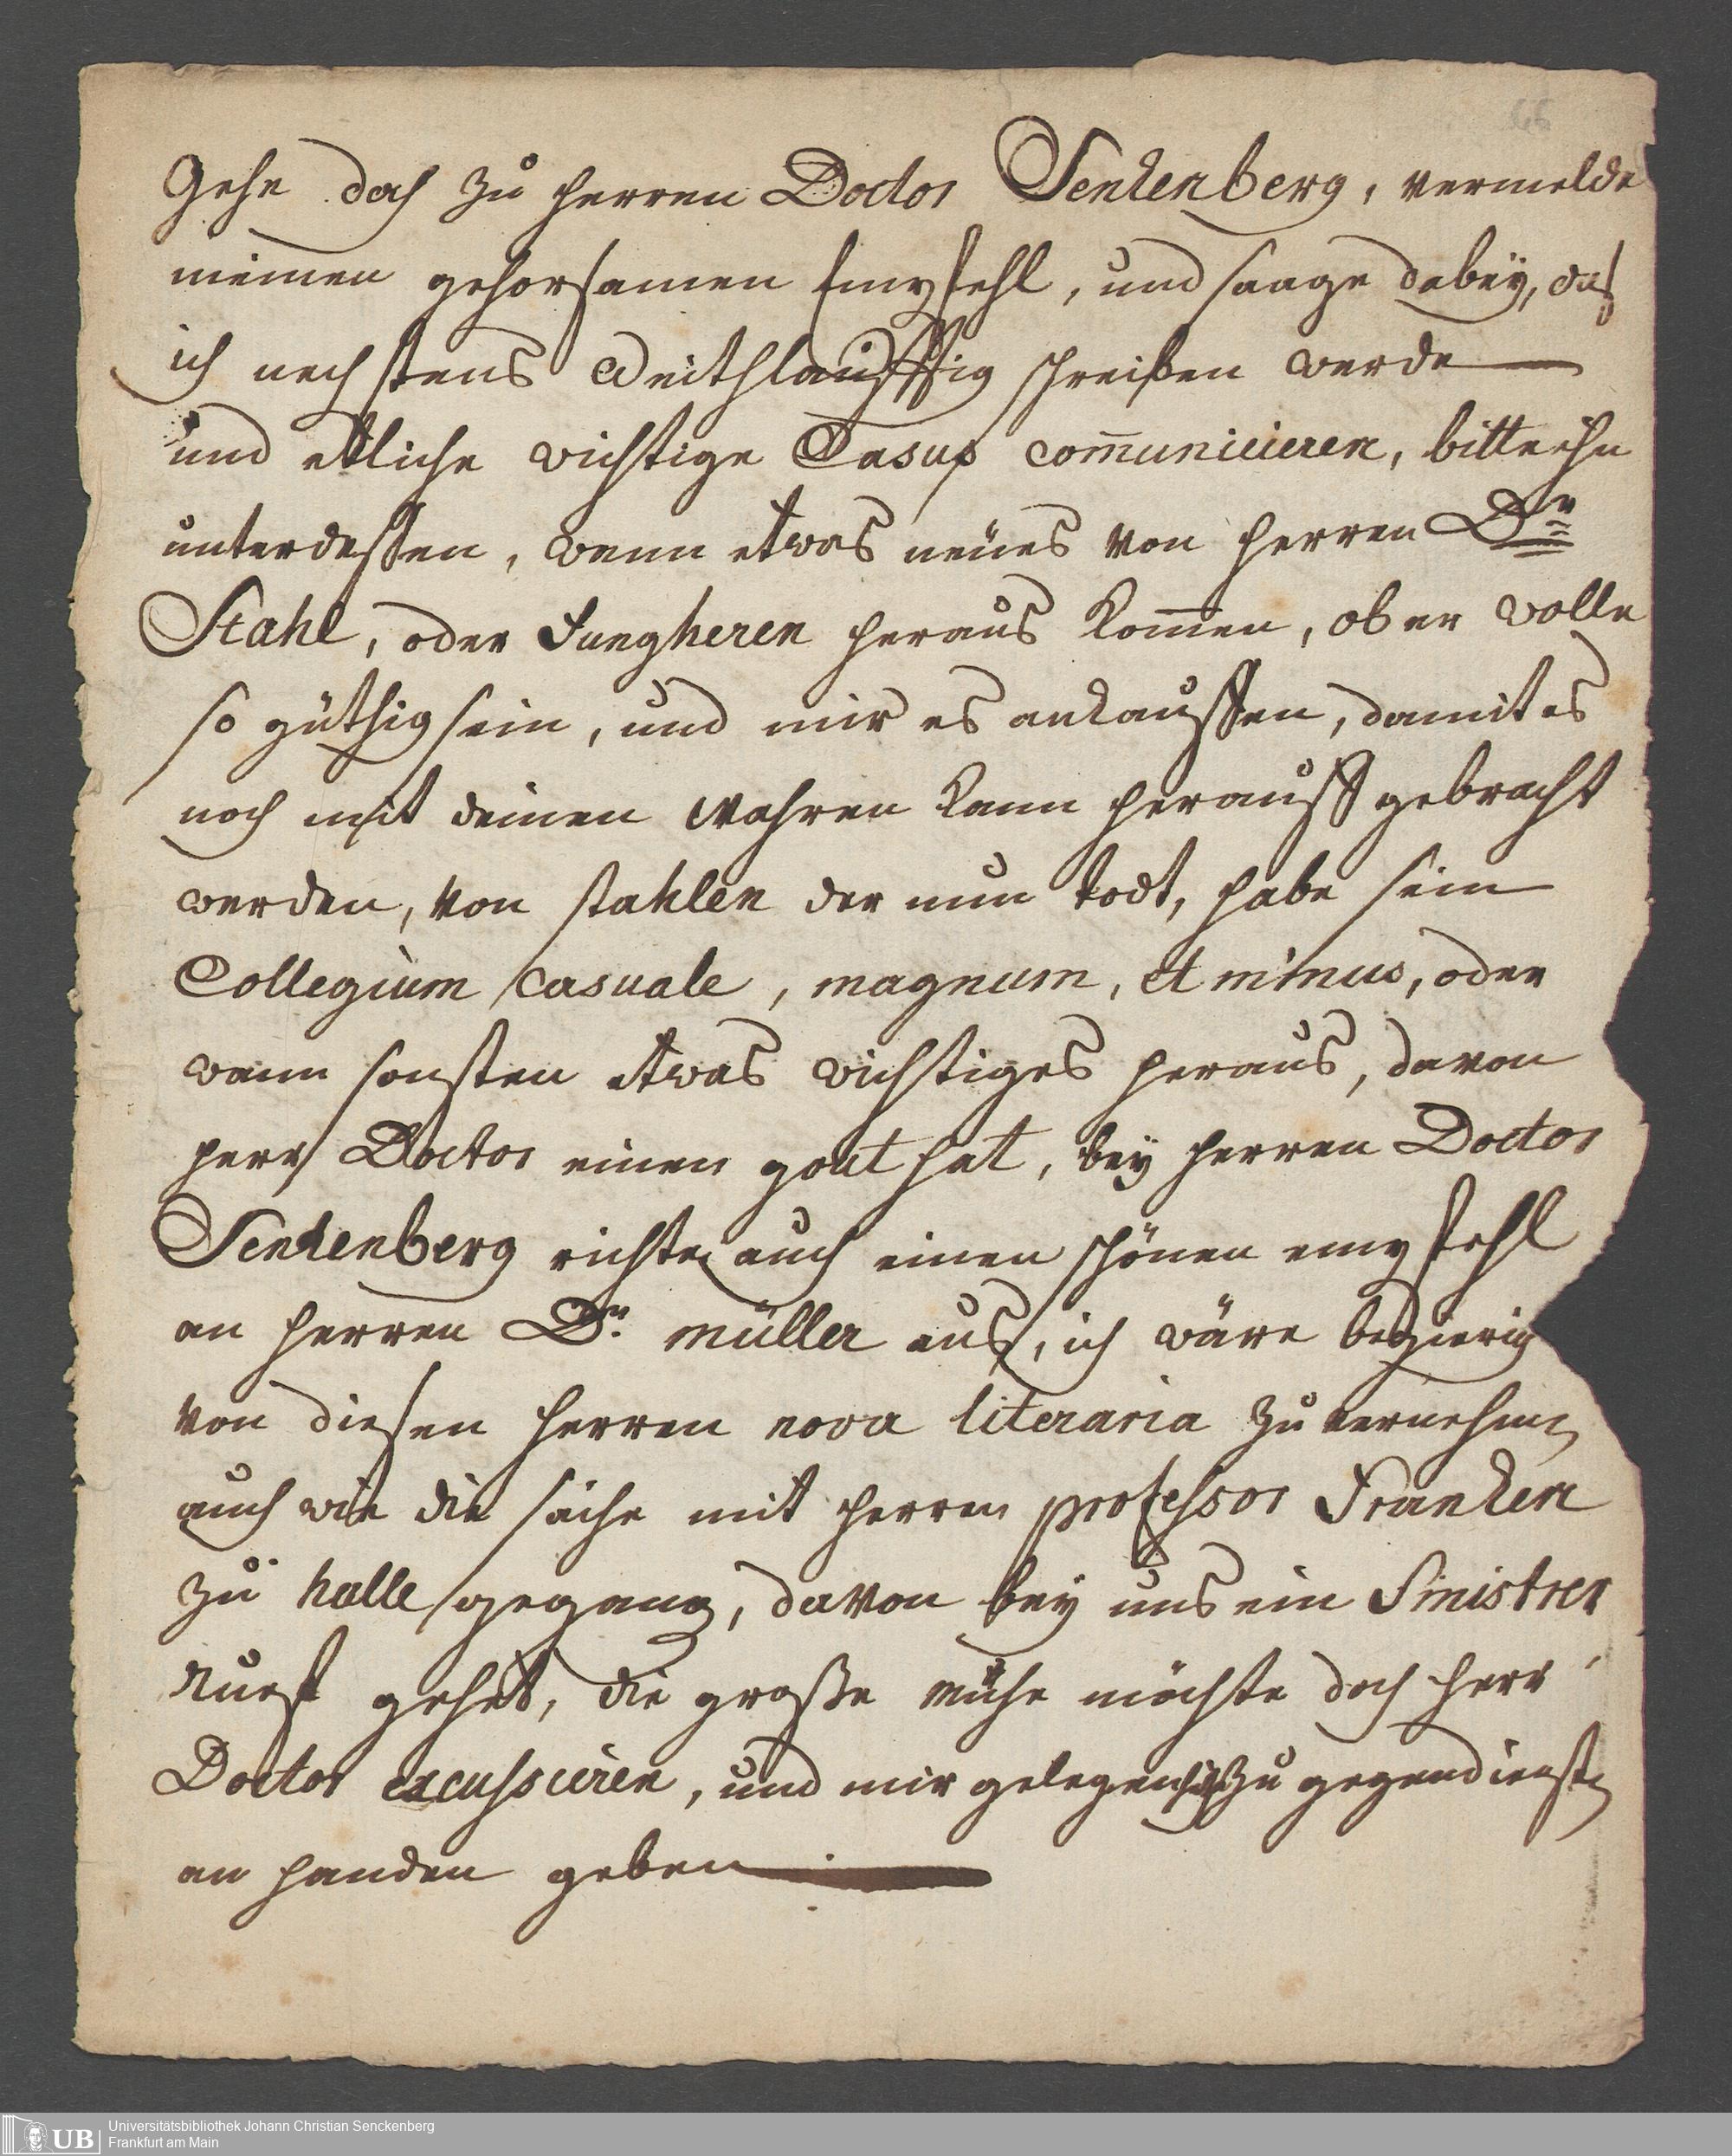 Gehe doch zu herren Doctor Senkenberg, vermelde
meinen gehorsamen Empfehl, und saage dabeÿ, daß
ich nechstens Weithlaufftig schreiben werde
und etliche wichtige Casus com̅unicieren, bitte ihn
unterdeßen, wenn etwas neües von herren Dr
Stahl, oder Jungheren heraus kom̅en, ob er wolle
so güthig sein, und mir es ankauffen, damit es
noch mit deinen Wahren kann herauß gebracht
werden, von stahlen der nun todt, habe sein
Collegium casuale, magnum, et minus, oder
wann sonsten etwas wichtiges heraus, davon
herr Doctor einen gout hat, beÿ herren Doctor
Senkenberg richte auch einen schönen empfehl
an herren Dr. müller aus, ich wäre begierig
von diesen herren nova literaria zu vernehmen
auch wie die sache mit herren professor Franken
zu halle gegang, davon beÿ uns ein Sinistrer
rueff gehet, die große mühe möchte doch herr
Doctor excussieren, und mir gelegenheit zu gegendiensten
an handen geben
UB
Universitätsbibliothek Johann Christian Senckenberg
Frankfurt am Main